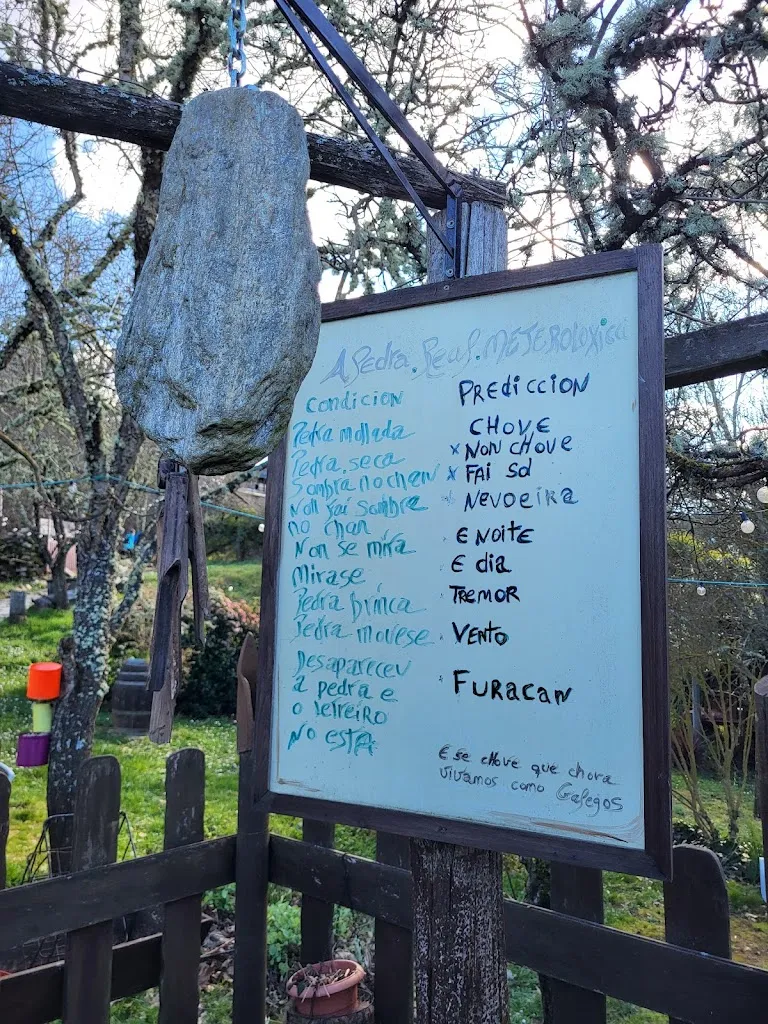 A Pedra. Real. METEROLOXica
Condicion
PREDICCION
Pedra mollada
CHOVE
Pedra. seca
x NON CHOVE
Sombra no chan
x FAI Sol
Non fai sombra
no chan
NEVOEIRA
Non se mira
E NOITE
Mirase
E dia
Pedra brinca
TREMOR
Pedra movese
VENTO
Desapareceu
a pedra e
o letreiro
No esta
FURACAN
E se chove que chora
vivamos como Galegos